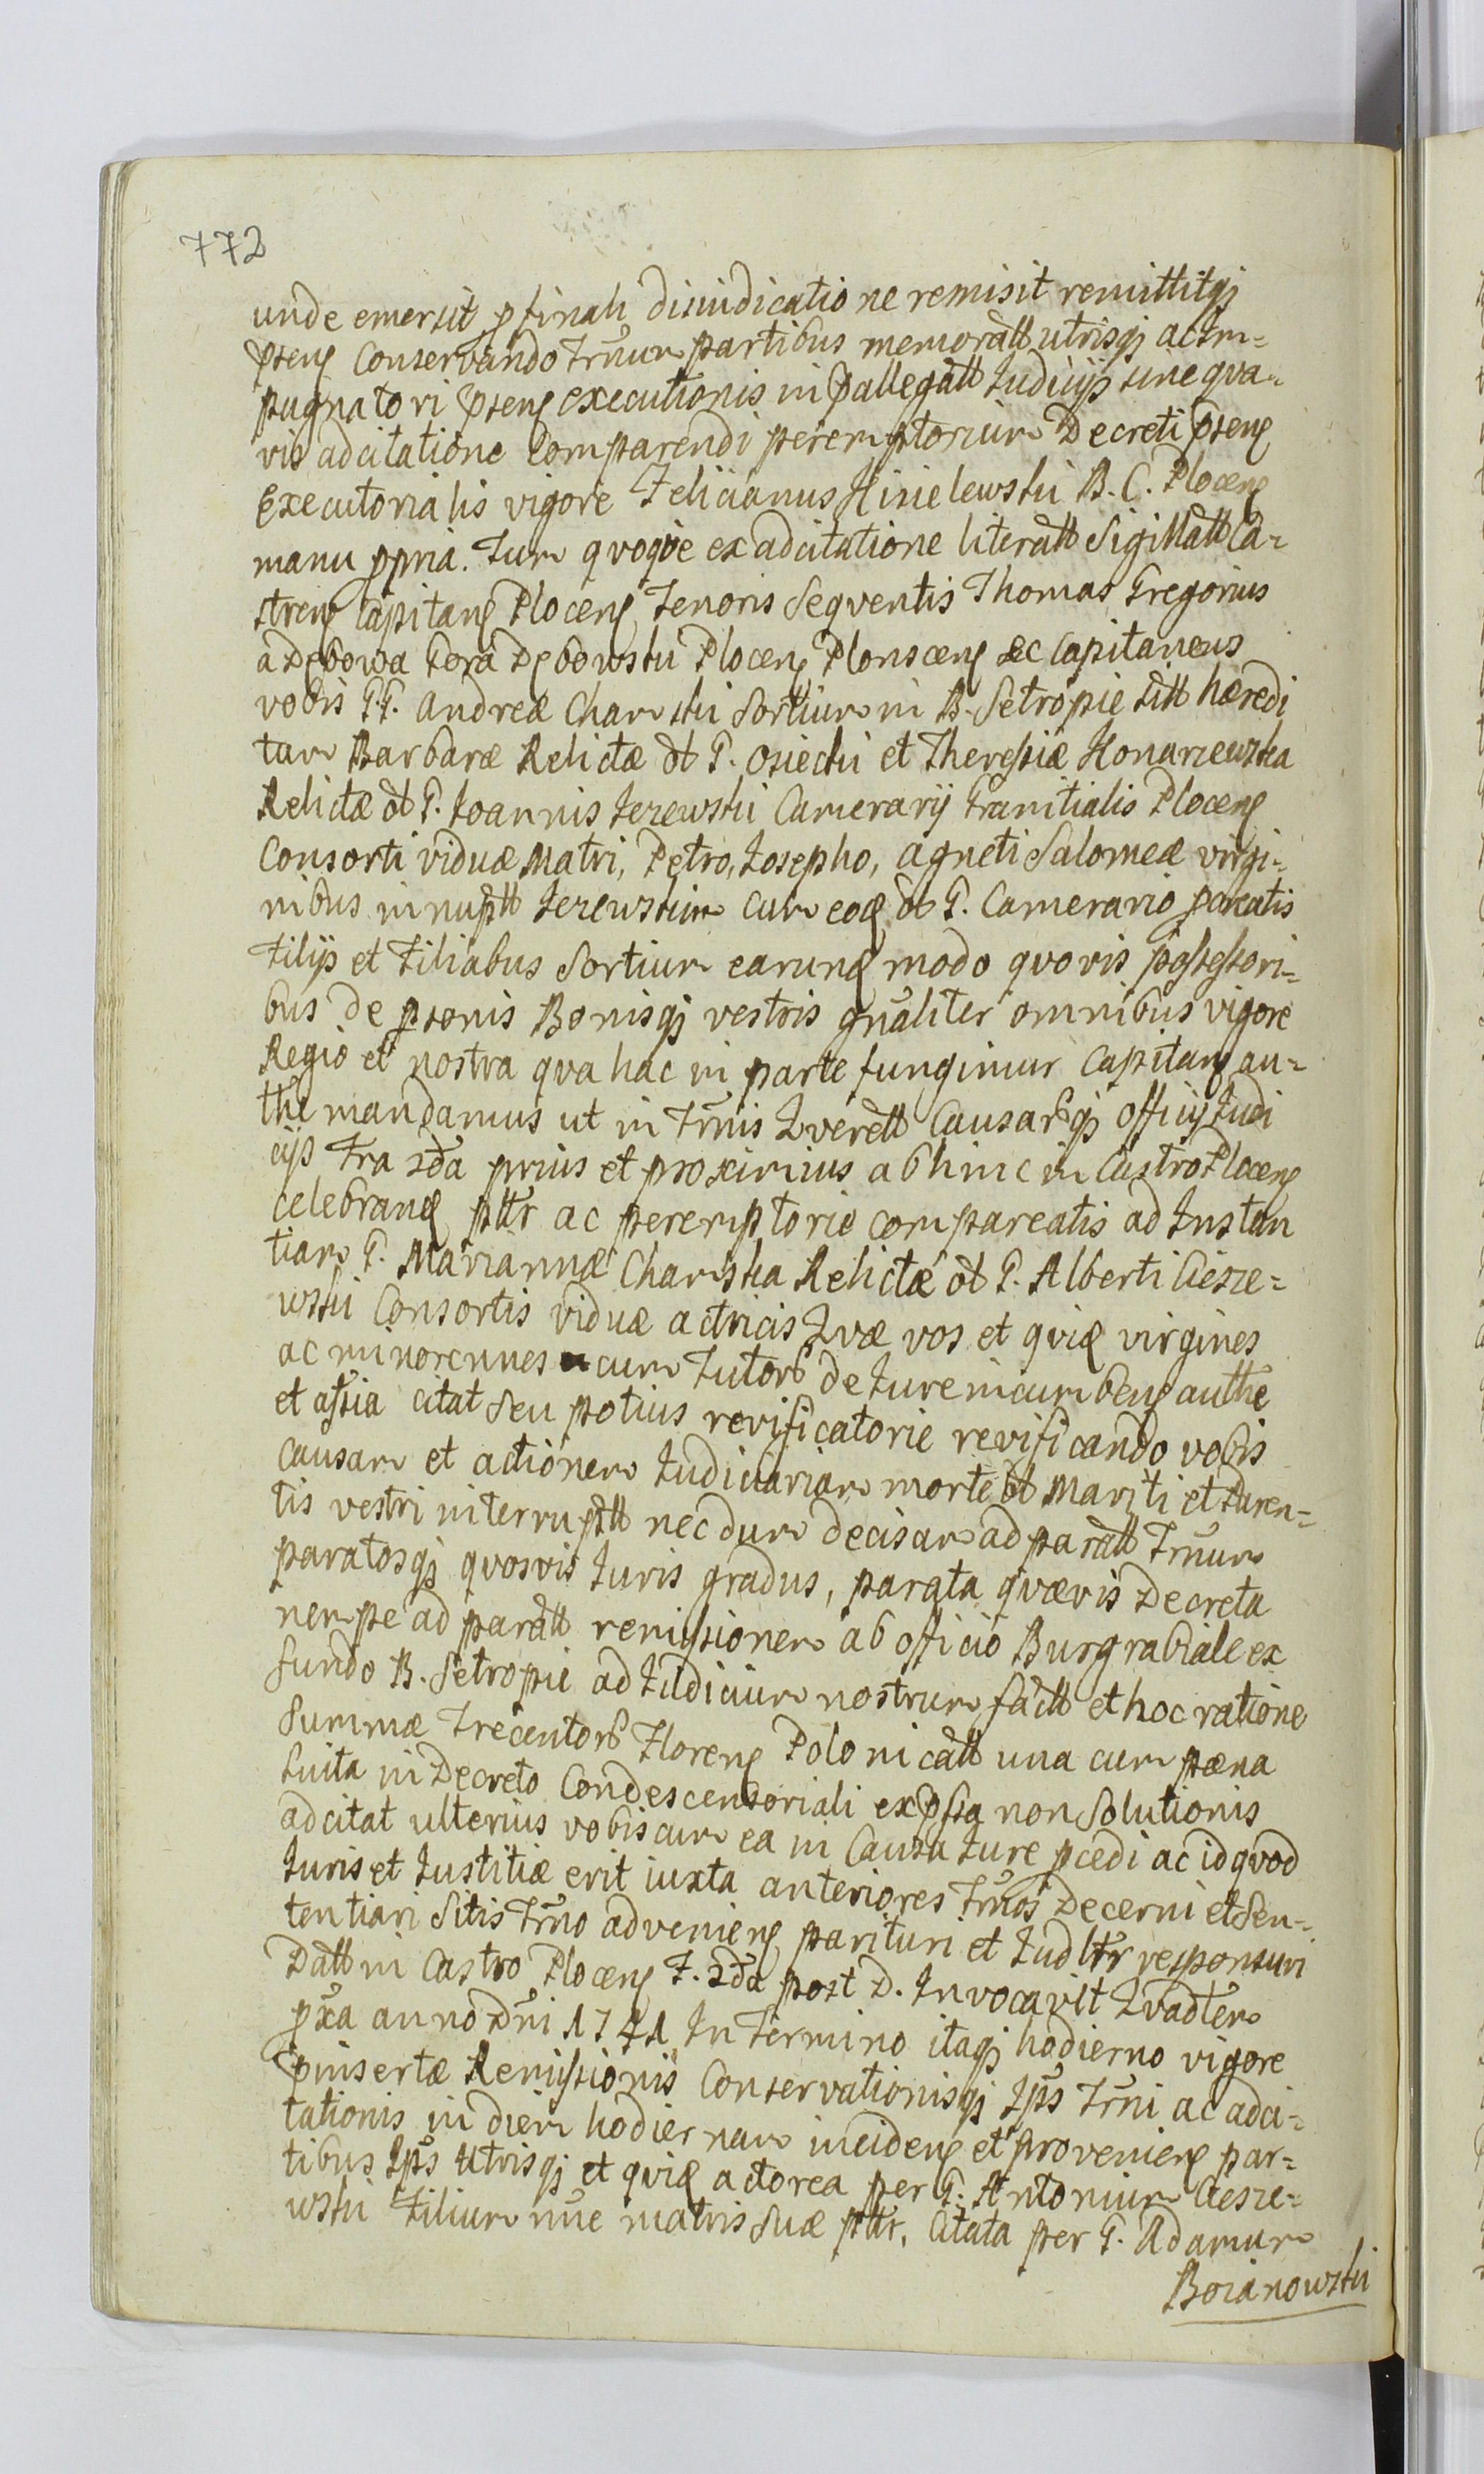 772
unde emersit p finali disiudicatione remisit remittitqȝ
pseng Conservando Trnum partibus memoratt utrisqȝ ac Im=
pugnatori pseng executionis in pallegatt Iudicijs sine qva=
vis adcitatione Comparendi peremptorium Decreti pseng
Executorialis vigore Felicianus Kisielewski B. C. Ploceng
manu ppria. Tum qvoqve ex adcitatione literatt Sigillatt Ca=
streng Capitang Ploceng Tenoris Seqventis Thomas Gregorius
a Dębowa Gora Dębowski Ploceng Plonsceng &c Capitaneus
vobis G.G. Andreæ Charski Sortium in B. Setropie sitt hæredi
tam Barbaræ Relictæ olt G. Osiecki et Theresiæ Konarzewska
Relictæ olt G. Ioannis Jezewski Camerarij Granitialis Ploceng
Consorti viduæ Matri, Petro, Iosepho, Agneti Salomeæ virgi=
nibus innuptt Jezewskim cum eođ olt G. Camerario pcreatis
Filijs et Filiabus Sortium earunđ modo qvovis possessori=
bus de psonis Bonisqȝ vestris gnaliter omnibus vigore
Regio et nostra qva hac in parte fungimur Capitang au=
the mandamus ut in Trnis Qverell Causarqȝ officij Iudi
cijs Fra 2da prius et proximius abhinc in Castro Ploceng
celebranđ pttr ac peremptorie compareatis ad Instan
tiam G. Mariannæ Charska Relictæ olt G. Alberti Ciesze=
wski Consortis viduæ actricis Qvæ vos et qviđ virgines
ac minorennes cum tutor de Iure incumbeng authe
et assia citat Seu potius revificatorie revificando vobis
Causam et actionem Iudiciariam morte olt Mariti et Paren=
tis vestri interruptt necdum decisam ad paratt Trnum
paratosqȝ qvosvis Iuris gradus, parata qvævis Decreta
nempe ad paratt remissionem ab officio Burgrabiale ex
fundo B. Setropie ad Iudicium nostrum factt et hoc ratione
Summæ Trecentor Floreng Polonicatt una cum pæna
Luita in Decreto Condescensoriali ex pssa non Solutionis
adcitat ulterius vobiscum ea in Causa Iure pcedi ac id qvod
Iuris et Iustitiæ erit iuxta anteriores Trnos Decerni et Sen=
tentiari Sitis Trno advenieng parituri et Iudltr responsuri
Datt in Castro Ploceng F. 2da post D. Invocavit Qvadtem
pxa anno Dni 1741 In Termino itaqȝ hodierno vigore
pinsertæ Remissionis Conservationisqȝ Ips Trni ac adci=
tationis in diem hodiernam incideng et provenieng par=
tibus Ips Utrisqȝ et qviđ actorea per G. Antonium Ciesze=
wski Filium nne matris Suæ pttr, Citata per G. Adamum
Bozanowski